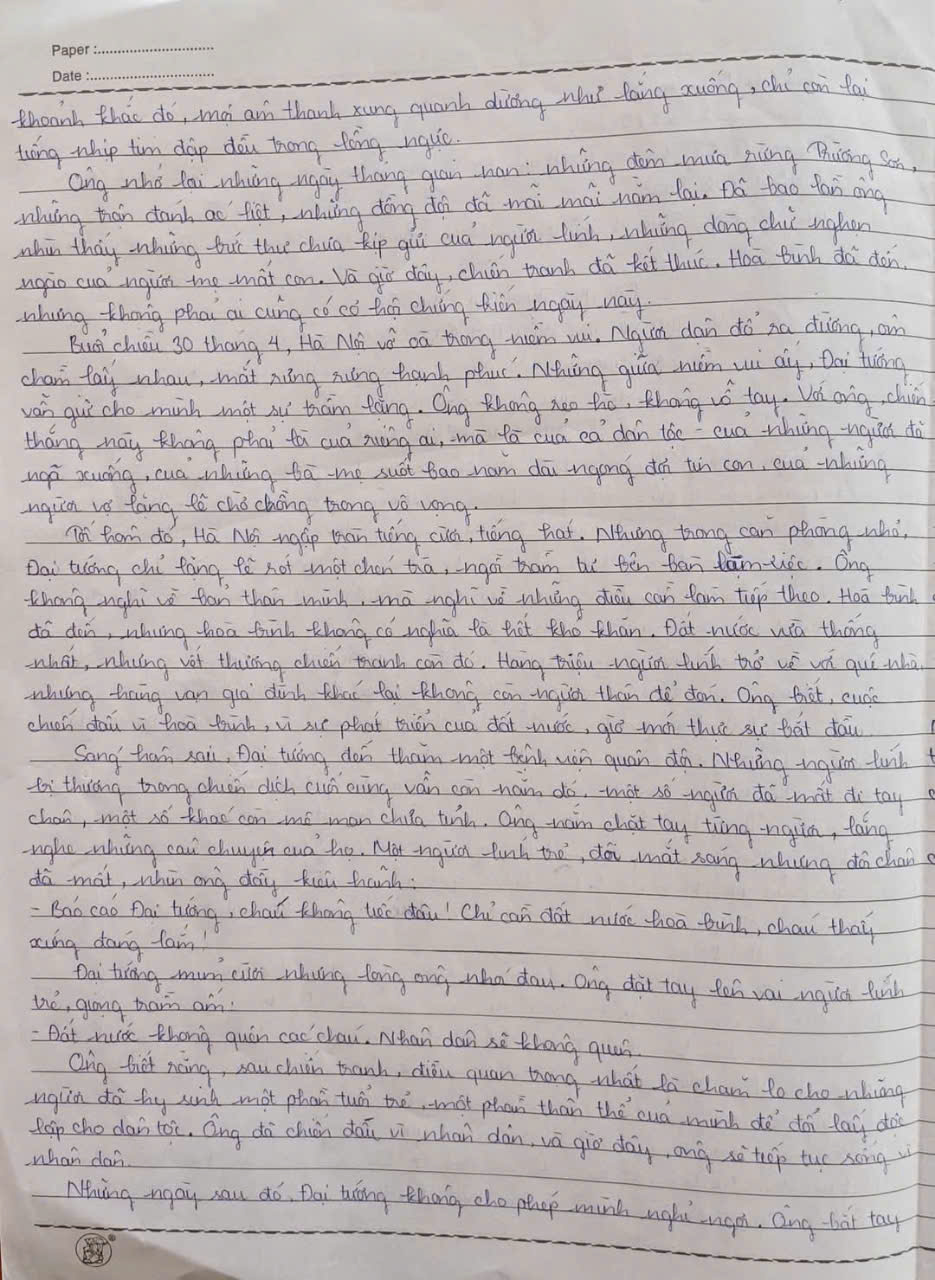 Paper :..............................
Date :...............................
khoảnh khắc đó, mọi âm thanh xung quanh dường như lắng xuống, chỉ còn lại
tiếng nhịp tim đập đều trong lồng ngực.
Ông nhớ lại những ngày tháng gian nan: những đêm mưa rừng Trường Sơn,
những trận đánh ác liệt, những đồng đội đã mãi mãi nằm lại. Đã bao lần ông
nhìn thấy những bức thư chưa kịp gửi của người lính, những dòng chữ nghẹn
ngào của người mẹ mất con. Và giờ đây, chiến tranh đã kết thúc. Hoà bình đã đến,
nhưng không phải ai cũng có cơ hội chứng kiến ngày này.
Buổi chiều 30 tháng 4, Hà Nội vỡ oà trong niềm vui. Người dân đổ ra đường, ôm
chầm lấy nhau, mắt rưng rưng hạnh phúc. Nhưng giữa niềm vui ấy, Đại tướng
vẫn giữ cho mình một sự trầm lắng. Ông không reo hò, không vỗ tay. Với ông, chiến
thắng này không phải là của riêng ai, mà là của cả dân tộc - của những người đã
ngã xuống, của những bà mẹ suốt bao năm dài ngóng đợi tin con, của những
người vợ lặng lẽ chờ chồng trong vô vọng.
Tối hôm đó, Hà Nội ngập tràn tiếng cười, tiếng hát. Nhưng trong căn phòng nhỏ,
Đại tướng chỉ lặng lẽ rót một chén trà, ngồi trầm tư bên bàn làm việc. Ông
không nghĩ về bản thân mình, mà nghĩ về những điều cần làm tiếp theo. Hoà bình
đã đến, nhưng hoà bình không có nghĩa là hết khó khăn. Đất nước vừa thống
nhất, nhưng vết thương chiến tranh còn đó. Hàng triệu người lính trở về với quê nhà,
nhưng hàng vạn gia đình khác lại không còn người thân để đón. Ông biết, cuộc
chiến đấu vì hoà bình, vì sự phát triển của đất nước, giờ mới thực sự bắt đầu
Sáng hôm sau, Đại tướng đến thăm một bệnh viện quân đội. Những người lính
bị thương trong chiến dịch cuối cùng vẫn còn nằm đó, một số người đã mất đi tay
chân, một số khác còn mê man chưa tỉnh. Ông nắm chặt tay từng người, lắng
nghe những câu chuyện của họ. Một người lính trẻ, đôi mắt sáng nhưng đôi chân
đã mất, nhìn ông đầy kiêu hãnh:
- Báo cáo Đại tướng, cháu không tiếc đâu! Chỉ cần đất nước hoà bình, cháu thấy
xứng đáng lắm!
Đại tướng mỉm cười nhưng lòng ông nhói đau. Ông đặt tay lên vai người lính
trẻ, giọng trầm ấm:
- Đất nước không quên các cháu. Nhân dân sẽ không quên.
Ông biết rằng, sau chiến tranh, điều quan trọng nhất là chăm lo cho những
người đã hy sinh một phần tuổi trẻ, một phần thân thể của mình để đổi lấy độc
lập cho dân tộc. Ông đã chiến đấu vì nhân dân, và giờ đây, ông sẽ tiếp tục sống vì
nhân dân.
Những ngày sau đó, Đại tướng không cho phép mình nghỉ ngơi. Ông bắt tay